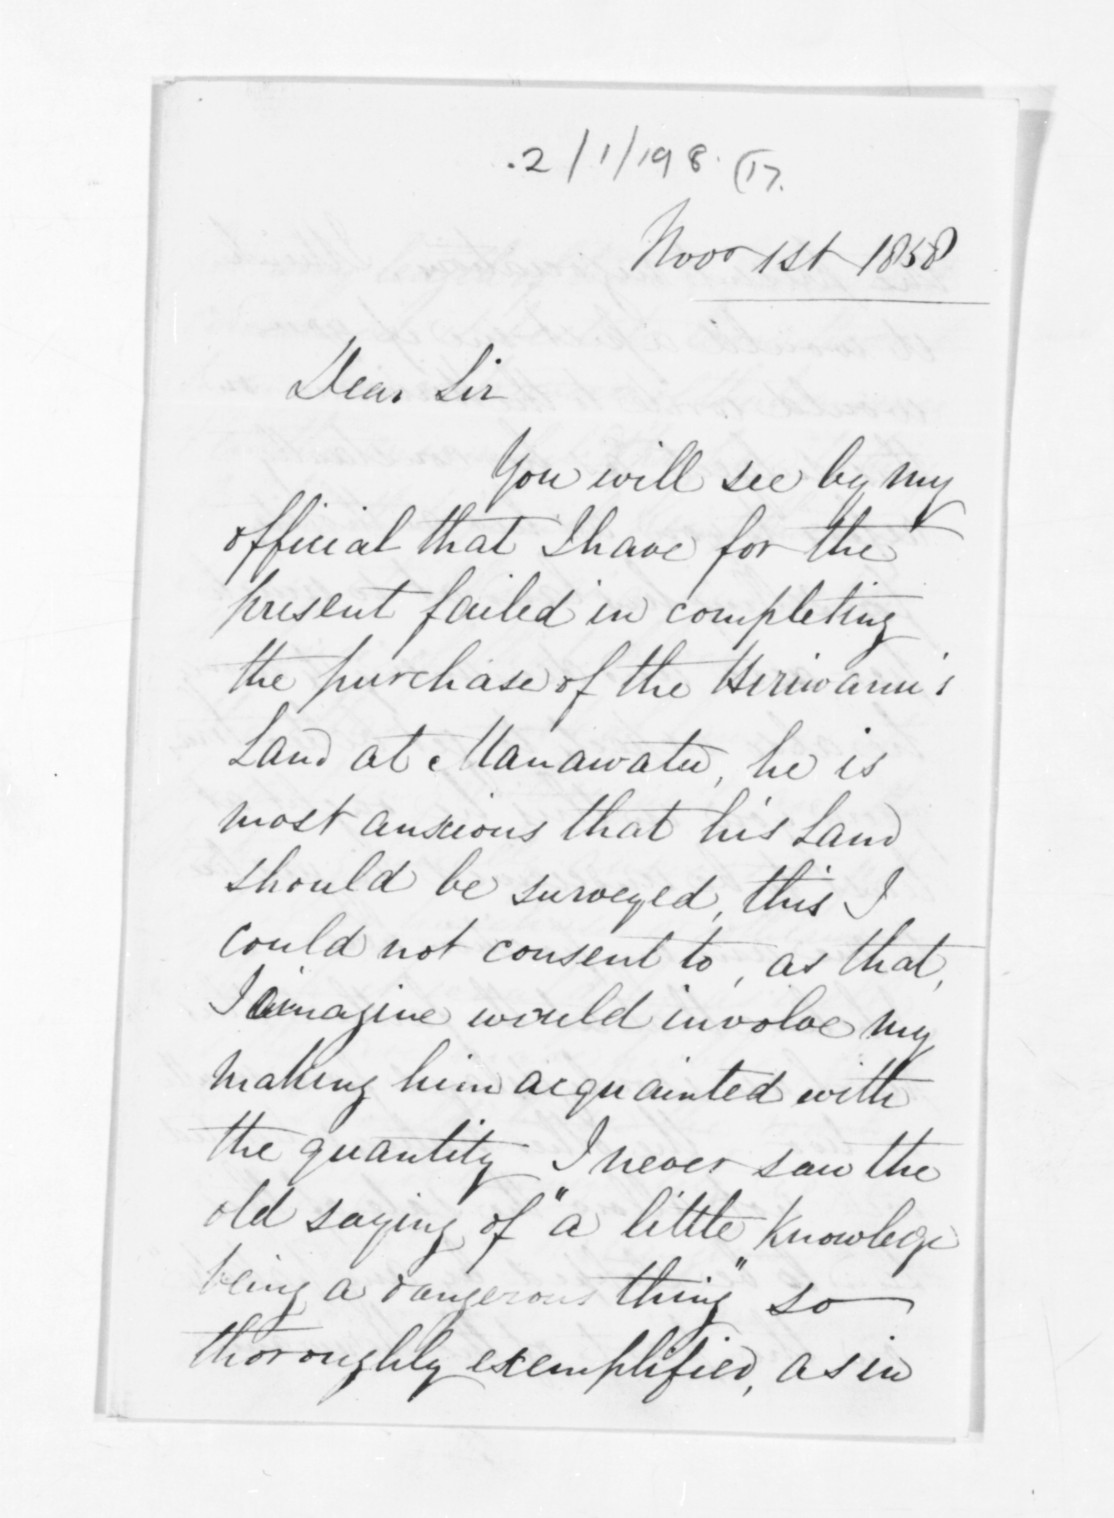 .2/1/198. (17.
Novr 1st 1858
Dear Sir
You will see by my
official that I have for the
present failed in completing
the purchase of the Hiriwanu's
Land at Manawatu, he is
most anxious that his Land
should be surveyed, this I
could not consent to, as that,
I imagine would involve my
making him acquainted with
the quantity I never saw the
old saying of "a little knowlege
being a dangerous thing" so
thoroughly exemplified, as in